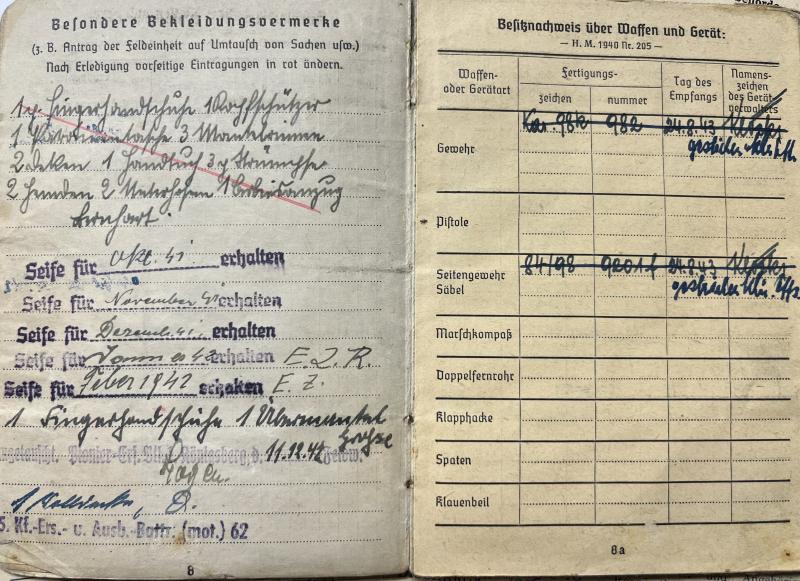 Besondere Bekleidungsvermerke
(z. B. Antrag der Feldeinheit auf Umtausch von Sachen usw.)
Nach Erledigung vorseitige Eintragungen in rot ändern.
Fingerhandschuhe 1 Kopfschützer
1 3 Mantelriemen
2 Decken 1 Handtuch 3 Strümpfe
2 Hemden 2 Unterhosen 1 Arbeitsanzug
Seife für Okt. 41 erhalten
Seife für November 41 erhalten
Seife für Dezemb. 41 erhalten
Seife für 42 erhalten
Seife für Feber 1942 erhalten E. Z.
1 Fingerhandschuhe 1 Übermantel
Pionier-Ers. Königsberg 11.12.42
1 D.
5. Kf.-Ers.- u. Ausb.-Battr. (mot.) 62
8
Besitznachweis über Waffen und Gerät:
— H. M. 1940 Nr. 205 —
Waffen- oder Gerätart
Fertigungs-
zeichen
nummer
Tag des Empfangs
Namenszeichen des Gerätverwalters
Gewehr Kar. 98k 982 24.8.43
gestrichen
Pistole
Seitengewehr Säbel 84/98 9201 f 24.8.43
gestrichen
Marschkompaß
Doppelfernrohr
Klapphacke
Spaten
Klauenbeil
8a